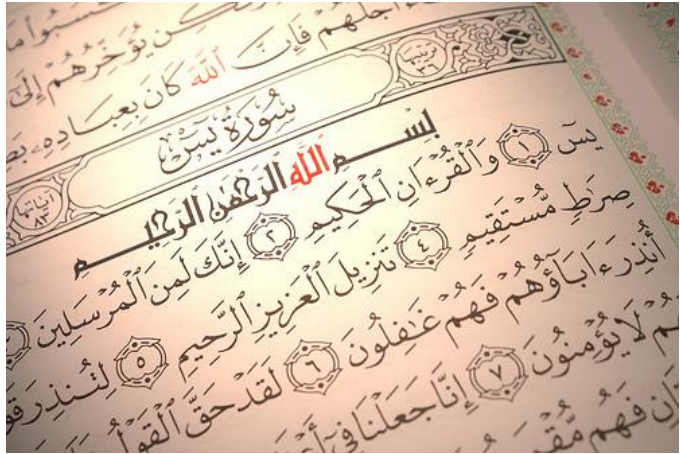 أَجَلُهُمْ فَإِنَّ ٱللَّهَ كَانَ بِعِبَادِهِۦ
يُؤَخِّرُهُمْ إِلَىٰٓ
ترتيبها ٣٦
سُورَةُ يسٓ
آياتها ٨٣
بِسْمِ ٱللَّهِ ٱلرَّحْمَٰنِ ٱلرَّحِيمِ
يسٓ ١ وَٱلْقُرْءَانِ ٱلْحَكِيمِ ٢ إِنَّكَ لَمِنَ ٱلْمُرْسَلِينَ
صِرَٰطٍ مُّسْتَقِيمٍ ٤ تَنزِيلَ ٱلْعَزِيزِ ٱلرَّحِيمِ ٥ لِتُنذِرَ
أُنذِرَ ءَابَآؤُهُمْ فَهُمْ غَٰفِلُونَ ٦ لَقَدْ حَقَّ ٱلْقَوْلُ
لَا يُؤْمِنُونَ ٧ إِنَّا جَعَلْنَا فِىٓ
فَهُم